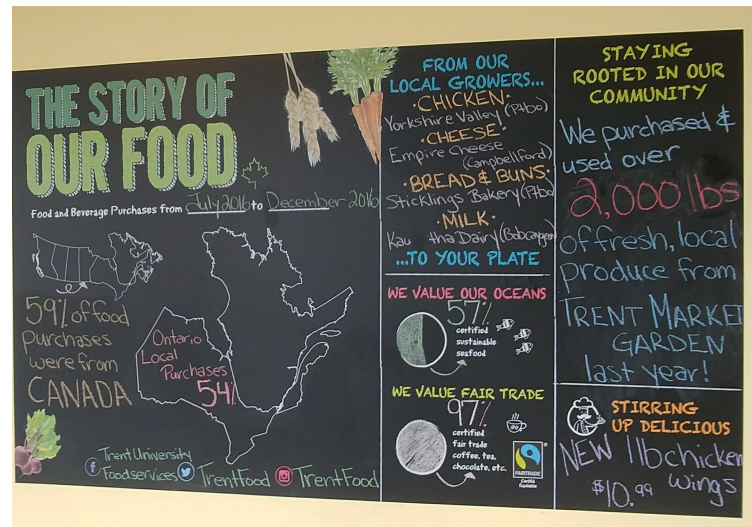 THE STORY OF
OUR FOOD
Food and Beverage Purchases from July 2016 to December 2016
59% of food
purchases
were from
CANADA
Ontario
Local
Purchases
54%
Trent University
Foodservices
TrentFood
TrentFood
FROM OUR
LOCAL GROWERS...
·CHICKEN·
Yorkshire Valley (Ptbo)
·CHEESE·
Empire Cheese
(Campbellford)
·BREAD & BUNS·
Sticklings Bakery (Ptbo)
·MILK·
Kau tha Dairy (Bobcaygeon)
...TO YOUR PLATE
WE VALUE OUR OCEANS
57%
certified
sustainable
seafood
WE VALUE FAIR TRADE
97%
certified
fair trade
coffee, tea,
chocolate, etc.
FAIRTRADE
Certifié
Équitable
STAYING
ROOTED IN OUR
COMMUNITY
We purchased &
used over
2,000 lbs
of fresh, local
produce from
TRENT MARKET
GARDEN
last year!
STIRRING
UP DELICIOUS
NEW 1lb chicken
wings
$10.99